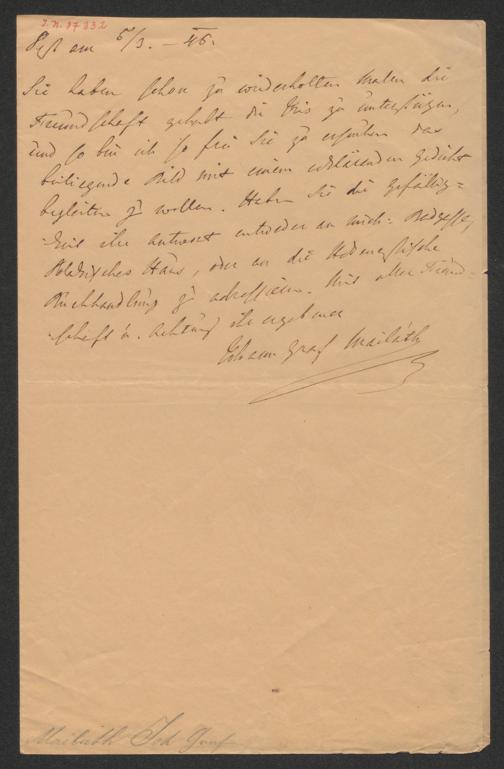 I.N. 87.332
Pest am 6/3. – 46.
Sie haben schon zu wiederholten Malen die
Freundschaft gehabt die Iris zu unterstützen,
und so bin ich so frei Sie zu ersuchen das
beiliegende Bild mit einem erklärenden Gedicht
begleiten zu wollen. Haben Sie die Gefällig=
keit ihre Antwort entweder an mich:
Haus, oder an die Heckenastische
Buchhandlung zu adressiren. Mit aller Freund=
schaft u. Achtung ihr ergebener
Johann Graf Mailáth
Mailáth Joh Graf